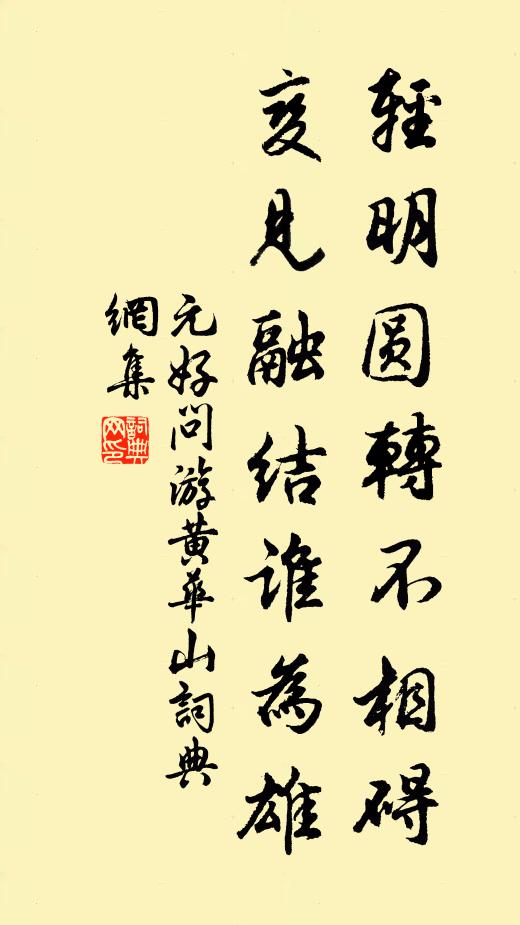 輕明圓轉不相碍
变見融結誰為雄
元好問游黄華山詞典
網集
詞典
网印